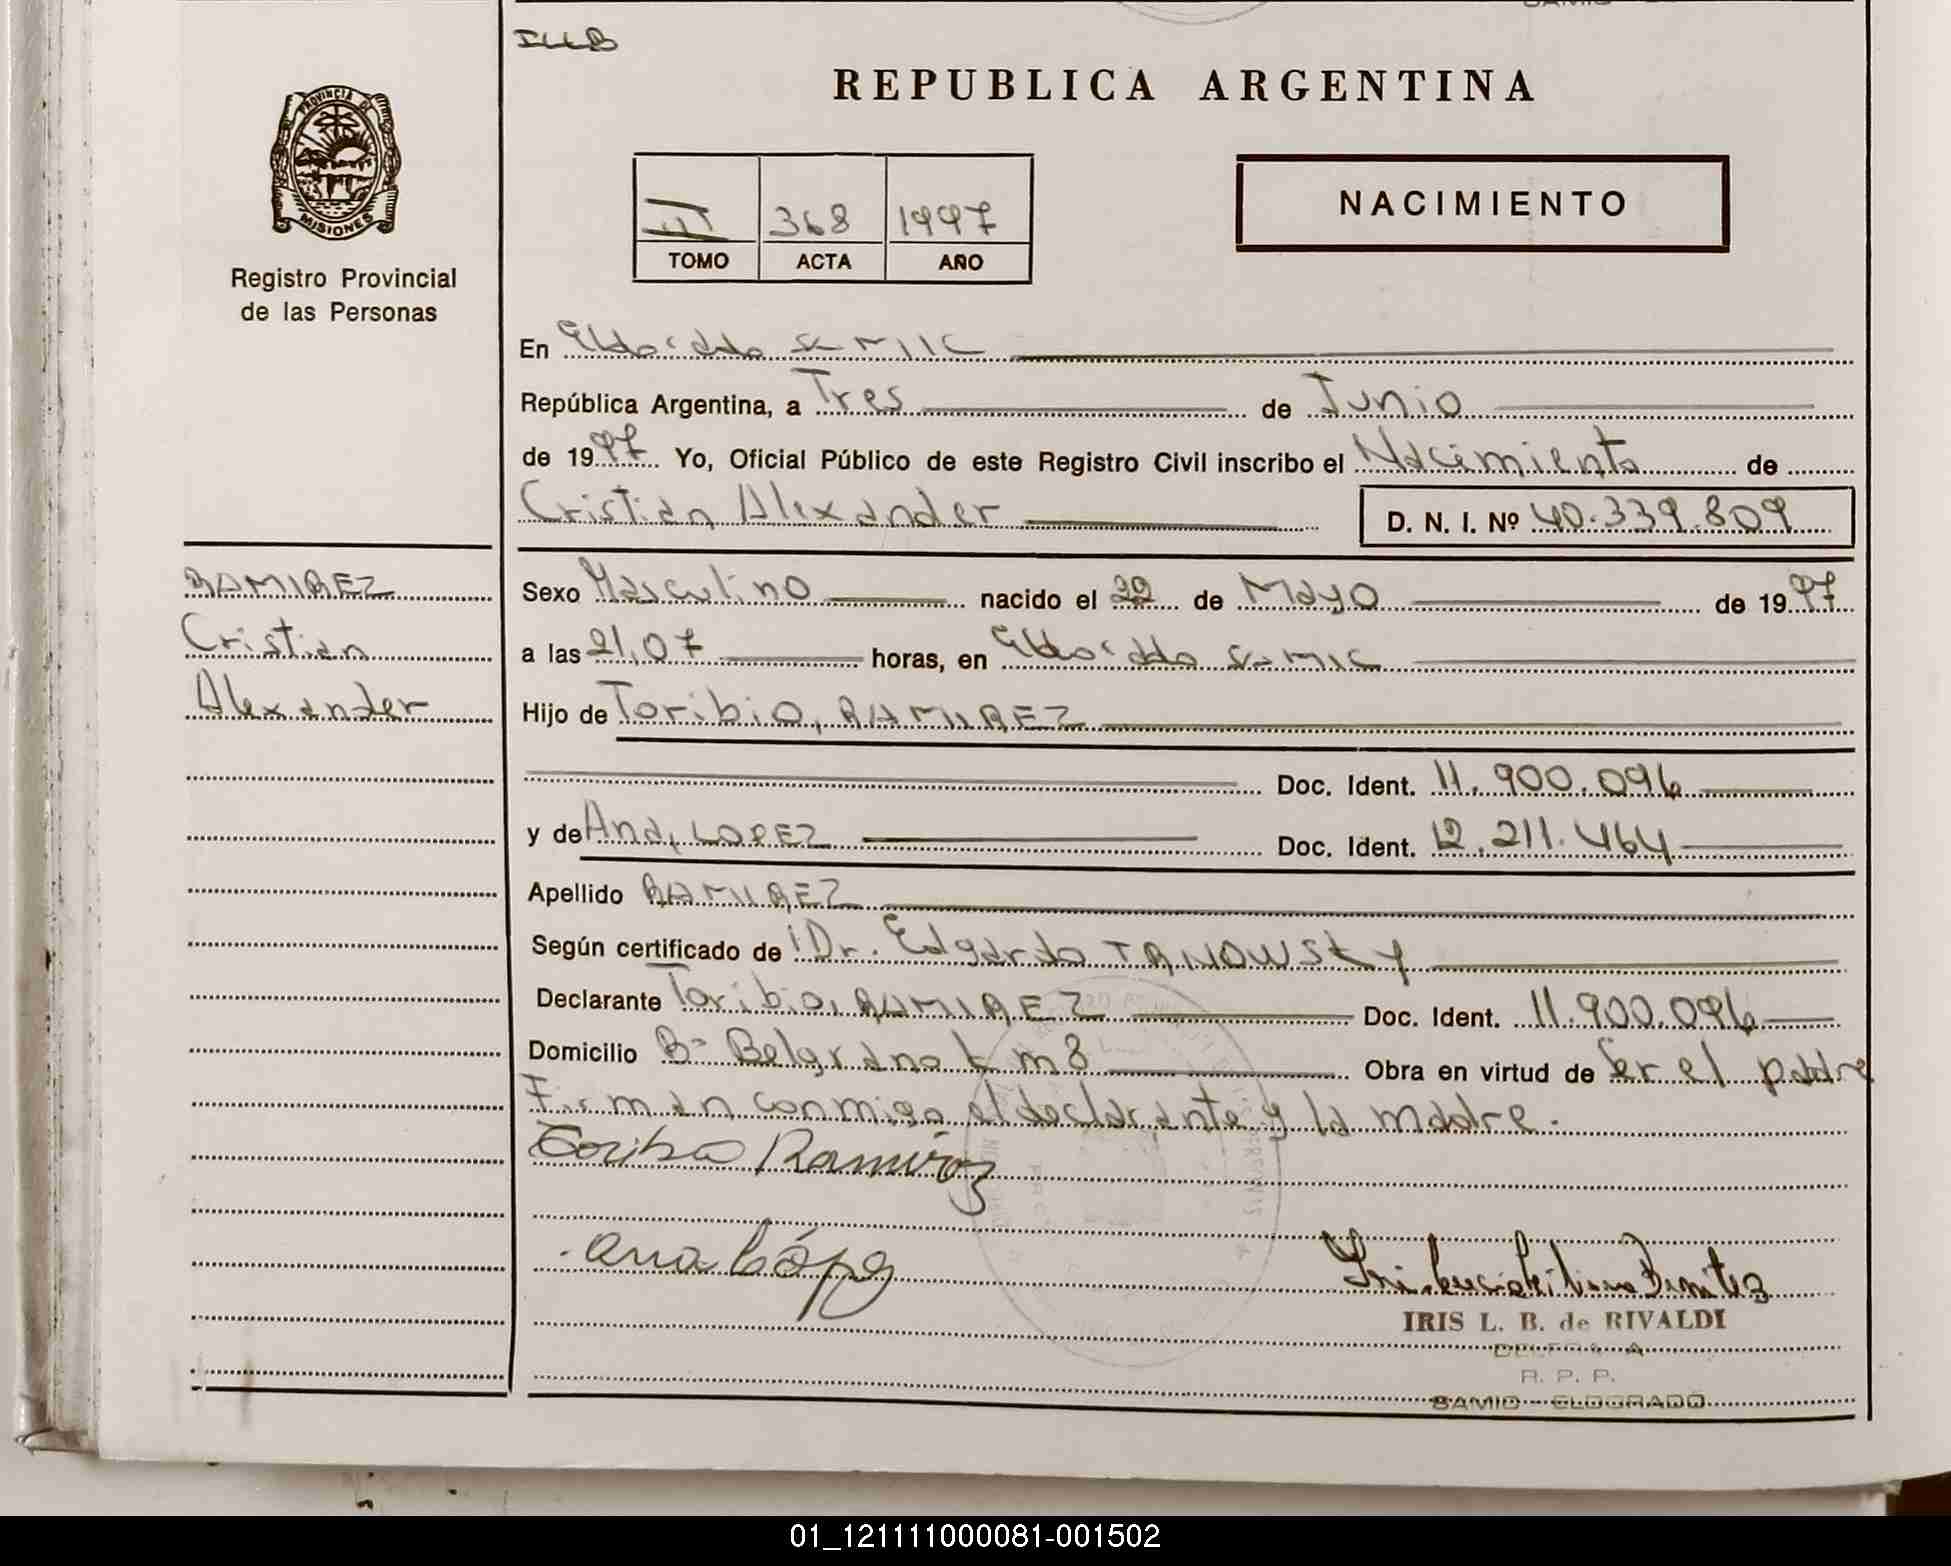 REPUBLICA ARGENTINA
PROVINCIA DE
MISIONES
Registro Provincial
de las Personas
III 368 1997
TOMO ACTA AÑO
NACIMIENTO
En Eldorado
República Argentina, a Tres de Junio
de 1997 Yo, Oficial Público de este Registro Civil inscribo el Nacimiento de
Cristian Alexander D. N. I. Nº 40.339.809
RAMIREZ
Cristian
Alexander
Sexo Masculino nacido el 22 de Mayo de 1997
a las 21,07 horas, en Eldorado
Hijo de Toribio, RAMIREZ
Doc. Ident. 11.900.096
y de Ana, LOPEZ Doc. Ident. 12.211.464
Apellido RAMIREZ
Según certificado de Dr. Edgardo
Declarante Toribio, RAMIREZ Doc. Ident. 11.900.096
Domicilio Bº Belgrano km 8 Obra en virtud de Ser el padre
Firman conmigo el declarante y la madre.
Toribio Ramirez
Ana López
Benitez
IRIS L. B. de RIVALDI
R. P. P.
SAMIC - ELDORADO
01_121111000081-001502